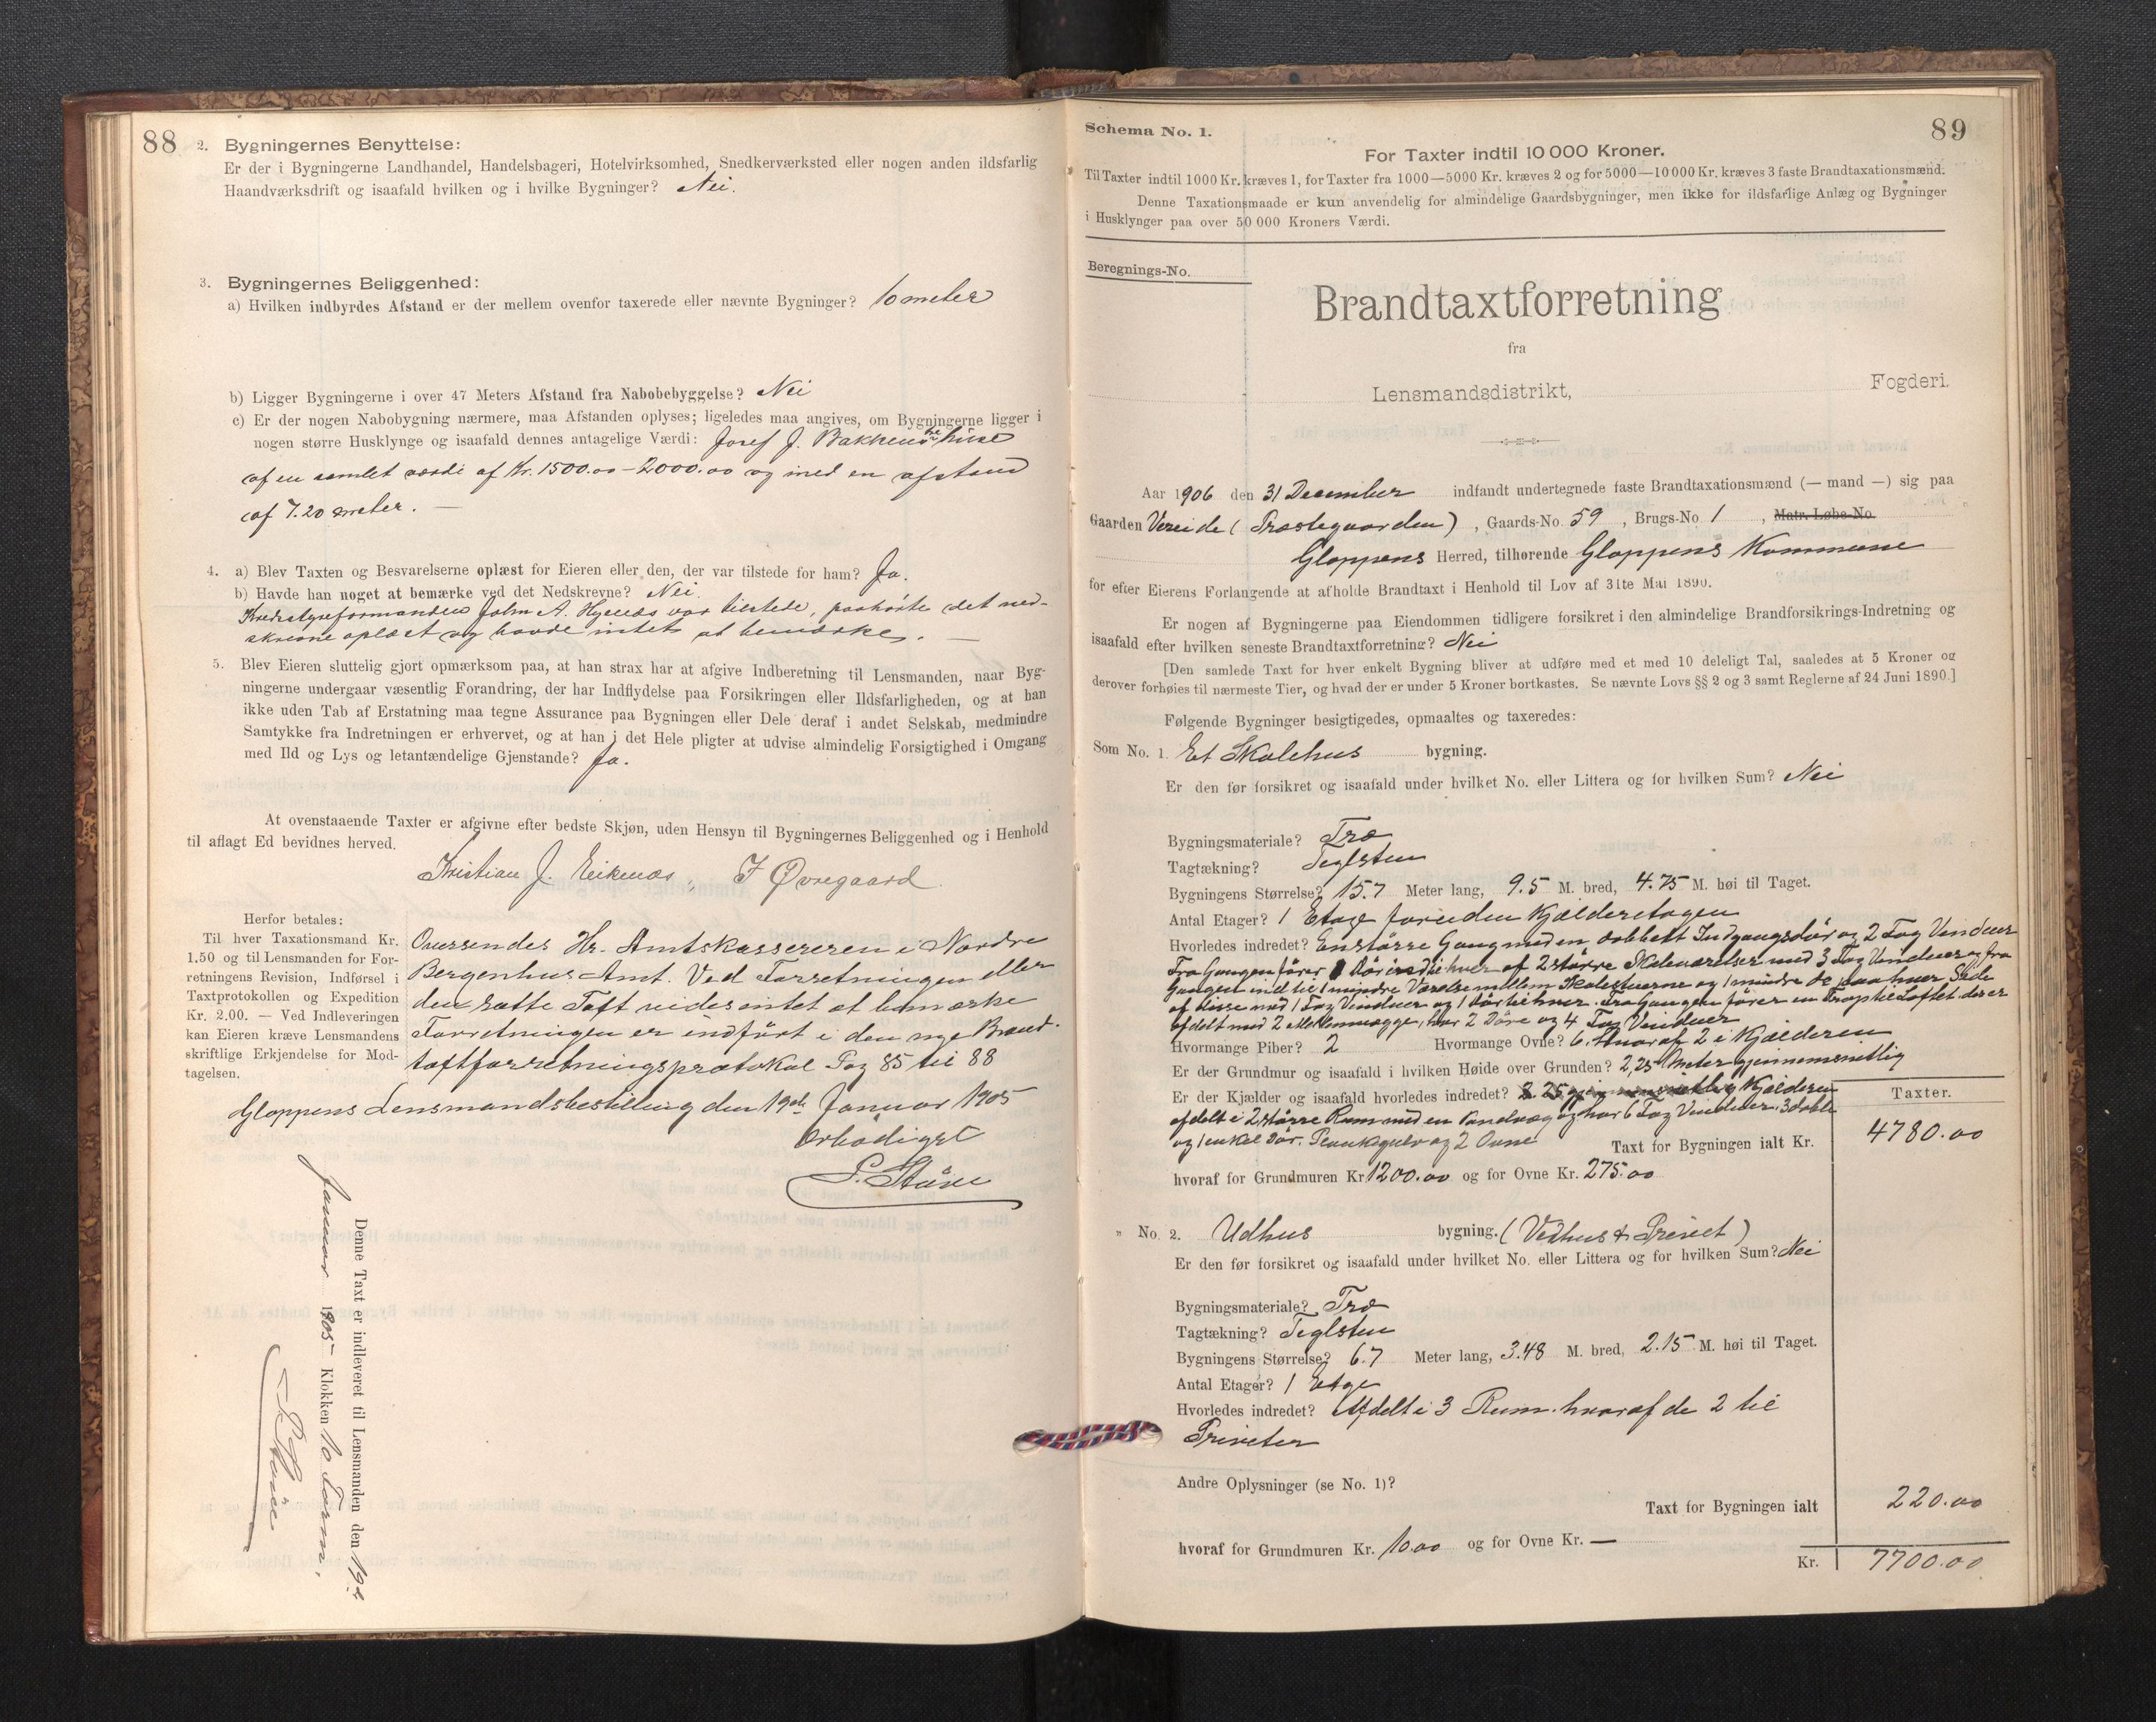 88
2. Bygningernes Benyttelse:
Er der i Bygningerne Landhandel, Handelsbageri, Hotelvirksomhed, Snedkerværksted eller nogen anden ildsfarlig
Haandværksdrift og isaafald hvilken og i hvilke Bygninger? Nei.
3. Bygningernes Beliggenhed:
a) Hvilken indbyrdes Afstand er der mellem ovenfor taxerede eller nævnte Bygninger? 10 meter
b) Ligger Bygningerne i over 47 Meters Afstand fra Nabobebyggelse? Nei
c) Er der nogen Nabobygning nærmere, maa Afstanden oplyses; ligeledes maa angives, om Bygningerne ligger i
nogen større Husklynge og isaafald dennes antagelige Værdi: Josef J. Bakkens huse
af en samlet værdi af Kr. 1500.00 – 2000.00 og med en afstand
af 7.20 meter. —
4. a) Blev Taxten og Besvarelserne oplæst for Eieren eller den, der var tilstede for ham? Ja.
b) Havde han noget at bemærke ved det Nedskrevne? Nei.
Kredsstyreformanden John A. Hjelles var tilstede, paahørte det ned-
skrevne oplæst og havde intet at bemærke. —
5. Blev Eieren sluttelig gjort opmærksom paa, at han strax har at afgive Indberetning til Lensmanden, naar Byg-
ningerne undergaar væsentlig Forandring, der har Indflydelse paa Forsikringen eller Ildsfarligheden, og at han
ikke uden Tab af Erstatning maa tegne Assurance paa Bygningen eller Dele deraf i andet Selskab, medmindre
Samtykke fra Indretningen er erhvervet, og at han i det Hele pligter at udvise almindelig Forsigtighed i Omgang
med Ild og Lys og letantændelige Gjenstande? Ja.
At ovenstaaende Taxter er afgivne efter bedste Skjøn, uden Hensyn til Bygningernes Beliggenhed og i Henhold
til aflagt Ed bevidnes herved.
Kristian J. Eikenæs, J Øvregaard
Herfor betales:
Til hver Taxationsmand Kr.
1.50 og til Lensmanden for For-
retningens Revision, Indførsel i
Taxtprotokollen og Expedition
Kr. 2.00. — Ved Indleveringen
kan Eieren kræve Lensmandens
skriftlige Erkjendelse for Mod-
tagelsen.
Oversendes Hr. Amtskassereren i Nordre
Bergenhus Amt. Ved Forretningen eller
den satte Taxt vides intet at bemærke
Forretningen er indført i den nye Brand-
taxtforretningsprotokol Pag 85 til 88
Gloppens Lensmandsbestilling den 19de Januar 1905
Ærbødigst
Denne Taxt er indleveret til Lensmanden den 19de
Januar 1905 Klokken 10 Form.
Schema No. 1.
89
For Taxter indtil 10 000 Kroner.
Til Taxter indtil 1000 Kr. kræves 1, for Taxter fra 1000—5000 Kr. kræves 2 og for 5000—10 000 Kr. kræves 3 faste Brandtaxationsmænd.
Denne Taxationsmaade er kun anvendelig for almindelige Gaardsbygninger, men ikke for ildsfarlige Anlæg og Bygninger
i Husklynger paa over 50 000 Kroners Værdi.
Beregnings-No.
Brandtaxtforretning
fra
Lensmandsdistrikt, Fogderi.
Aar 1906 den 31 December indfandt undertegnede faste Brandtaxationsmænd (— mand —) sig paa
Gaarden Vereide (Præstegaarden), Gaards-No. 59, Brugs-No 1, Matr.-Løbe-No.
Gloppens Herred, tilhørende Gloppens Kommune
for efter Eierens Forlangende at afholde Brandtaxt i Henhold til Lov af 31te Mai 1890.
Er nogen af Bygningerne paa Eiendommen tidligere forsikret i den almindelige Brandforsikrings-Indretning og
isaafald efter hvilken seneste Brandtaxtforretning? Nei
[Den samlede Taxt for hver enkelt Bygning bliver at udføre med et med 10 deleligt Tal, saaledes at 5 Kroner og
derover forhøies til nærmeste Tier, og hvad der er under 5 Kroner bortkastes. Se nævnte Lovs §§ 2 og 3 samt Reglerne af 24 Juni 1890.]
Følgende Bygninger besigtigedes, opmaaltes og taxeredes:
Som No. 1. Et Skolehus bygning.
Er den før forsikret og isaafald under hvilket No. eller Littera og for hvilken Sum? Nei
Bygningsmateriale? Træ
Tagtækning? Teglsten
Bygningens Størrelse? 15.7 Meter lang, 9.5 M. bred, 4.75 M. høi til Taget.
Antal Etager? 1 Etage foruden Kjælderetagen
Hvorledes indredet? En større Gang med en dobbelt Indgangsdør og 2 Fag Vinduer
Fra Gangen fører 1 Dør ind til hver af 2 større Skoleværelser med 3 Fag Vinduer og fra
Gangen ind til 1 mindre Værelse mellem Skolestuerne og 1 mindre do paa hver Side
af disse med 1 Fag Vinduer og 1 Dør til hver. Fra Gangen fører en Trap til Loftet der er
afdelt med 2 Mellemvægge, har 2 Døre og 4 Fag Vinduer
Hvormange Piber? 2 Hvormange Ovne? 6. Hvoraf 2 i Kjælderen
Er der Grundmur og isaafald i hvilken Høide over Grunden? 2,25 Meter gjennemsnitlig
Er der Kjælder og isaafald hvorledes indredet? Kjælderen
afdelt i 2 større Rum med en Tendvæg og har 6 Fag Vinduer. 3 doble
og 1 enkel Dør. Plankgulv og 2 Ovne
Taxter.
Taxt for Bygningen ialt Kr. 4780.00
hvoraf for Grundmuren Kr 1200.00 og for Ovne Kr. 275.00
" No. 2. Udhus bygning. (Vedhus & Privet)
Er den før forsikret og isaafald under hvilket No. eller Littera og for hvilken Sum? Nei
Bygningsmateriale? Træ
Tagtækning? Teglsten
Bygningens Størrelse? 6.7 Meter lang, 3.48 M. bred, 2.15 M. høi til Taget.
Antal Etager? 1 Etge
Hvorledes indredet? Afdelt i 3 Rum. hvoraf de 2 til
Priveter
Andre Oplysninger (se No. 1)?
Taxt for Bygningen ialt 220.00
hvoraf for Grundmuren Kr. 10.00 og for Ovne Kr. —
Kr. 7700.00